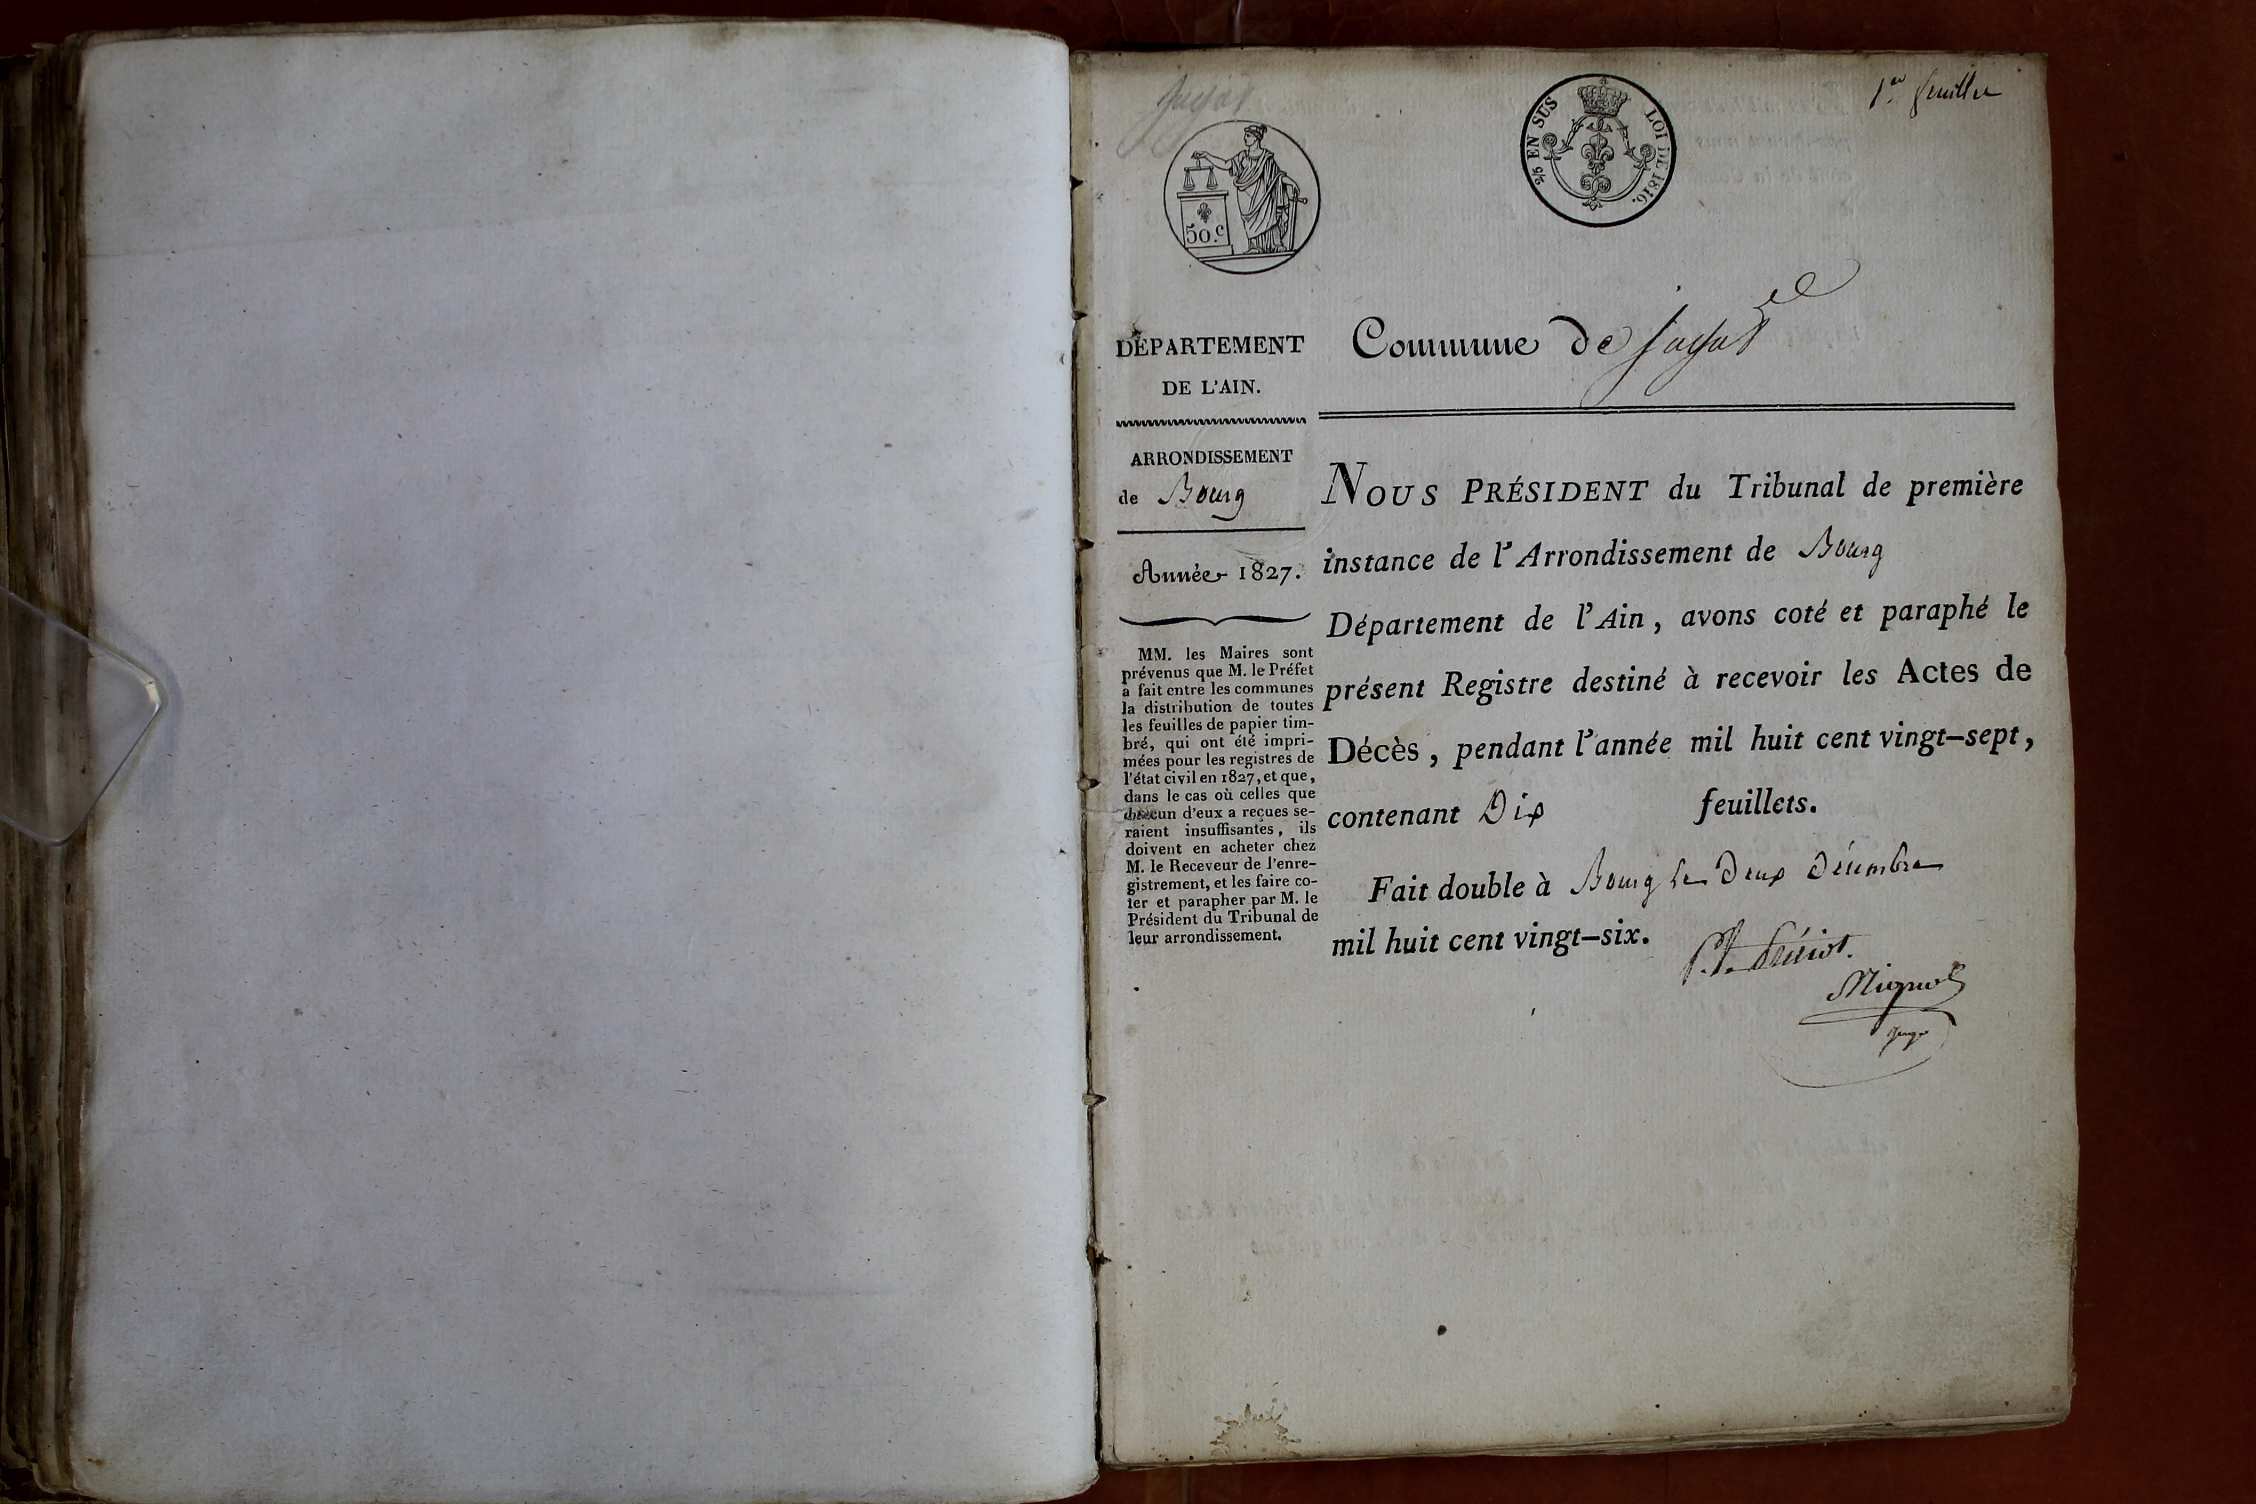 Jayat
1er feuillet
50.c
2/5 EN SUS
LOI DE 1816.
DÉPARTEMENT
DE L'AIN.
ARRONDISSEMENT
de Bourg
Année 1827.
MM. les Maires sont
prévenus que M. le Préfet
a fait entre les communes
la distribution de toutes
les feuilles de papier tim-
bré, qui ont été impri-
mées pour les registres de
l'état civil en 1827, et que,
dans le cas où celles que
chacun d'eux a reçues se-
raient insuffisantes, ils
doivent en acheter chez
M. le Receveur de l'enre-
gistrement, et les faire co-
ter et parapher par M. le
Président du Tribunal de
leur arrondissement.
Commune de Jayat
NOUS PRÉSIDENT du Tribunal de première
instance de l'Arrondissement de Bourg
Département de l'Ain, avons coté et paraphé le
présent Registre destiné à recevoir les Actes de
Décès, pendant l'année mil huit cent vingt-sept,
contenant Dix feuillets.
Fait double à Bourg le Deux Décembre
mil huit cent vingt-six.
Mignot
Juge